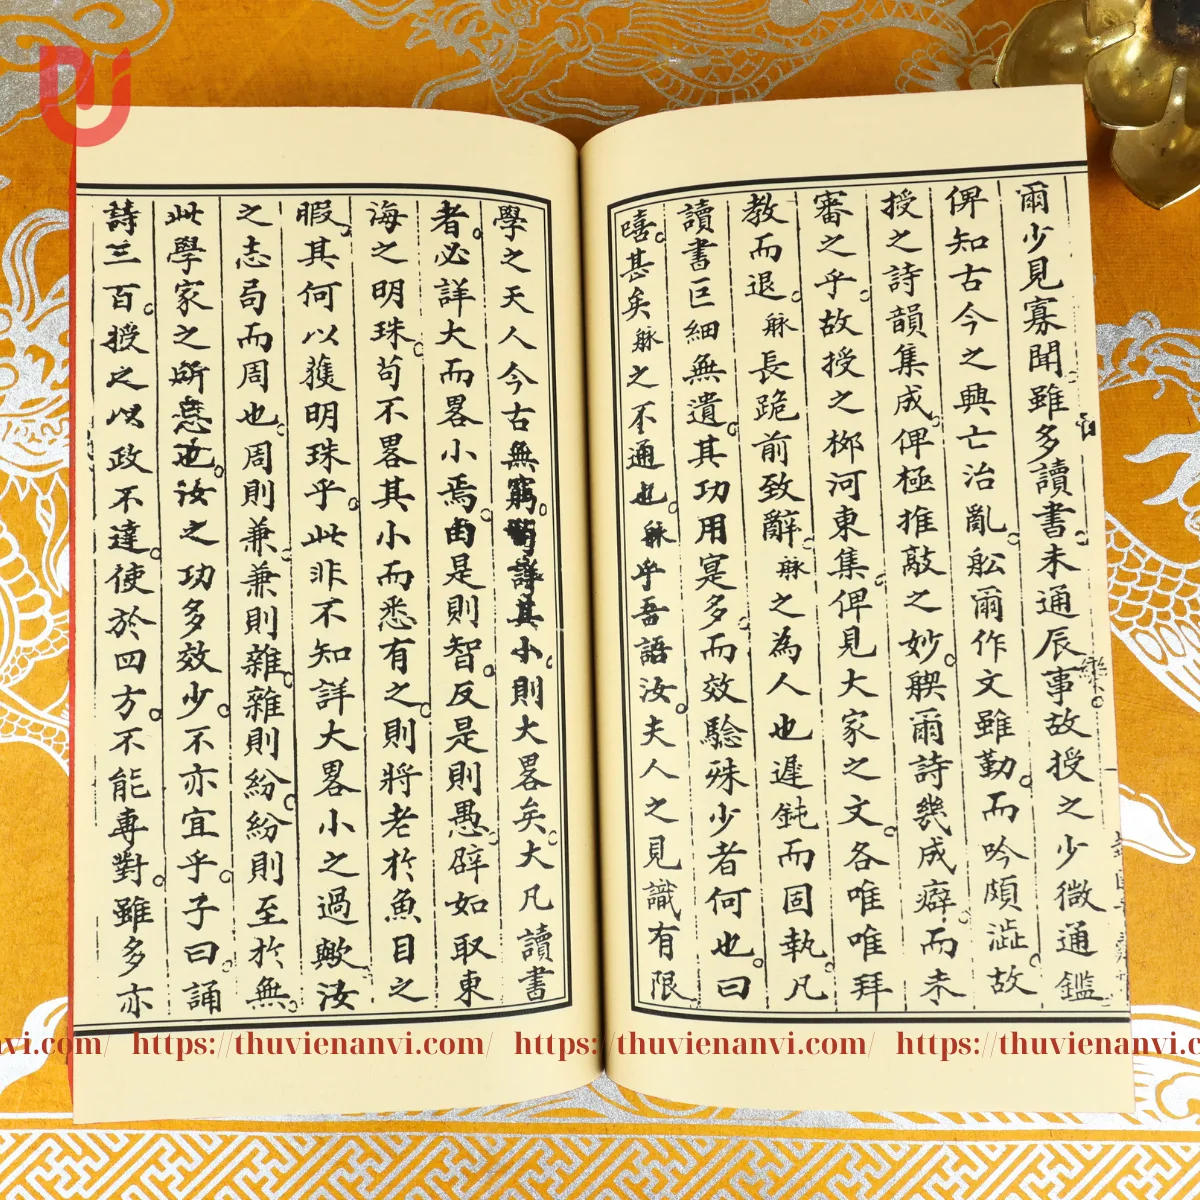 爾少見寡聞雖多讀書未通辰事故授之少微通鑑
俾知古今之興亡治亂舩爾作文雖勤而吟頗澁故
授之詩韻集成俾極推敲之妙㮮爾詩幾成癖而未
審之乎故授之柳河東集俾見大家之文各唯唯拜
教而退厤長跪前致辭厤之為人也遲鈍而固執凡
讀書巨細無遺其功用寔多而效驗殊少者何也曰
嘻甚矣厤之不通也厤乎吾語汝夫人之見識有限
學之天人今古無窮苟詳其小則大畧矣大凡讀書
者必詳大而畧小焉由是則智反是則愚辟如取東
海之明珠苟不畧其小而悉有之則將老於魚目之
暇其何以獲明珠乎此非不知詳大畧小之過歟汝
之志局而周也周則兼兼則雜雜則紛紛則至於無
此學家之所忌也汝之功多效少不亦宜乎子曰誦
詩三百授之以政不達使於四方不能專對雖多亦
https://thuvienanvi.com/ https://thuvienanvi.com/ https://thuvienanvi.c